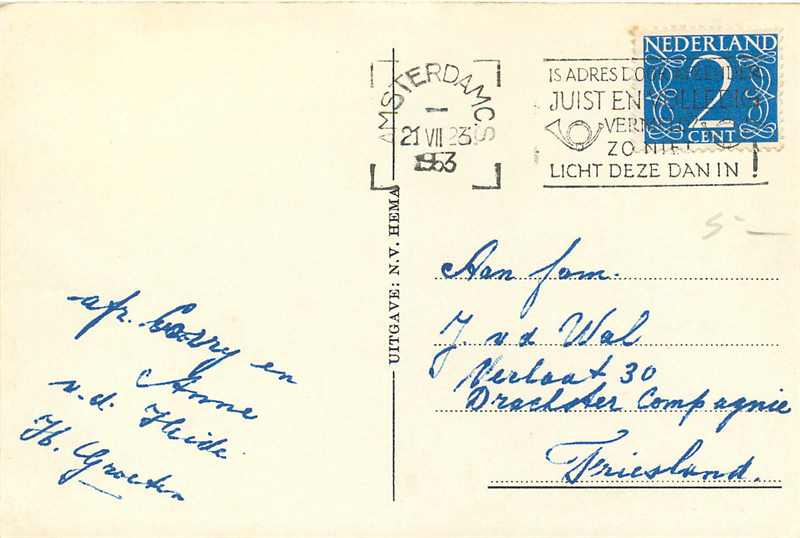 NEDERLAND
2
CENT
AMSTERDAM C.S
21 VII 23
1953
IS ADRES DOOR AFZENDER
JUIST EN VOLLEDIG
VERMELD?
ZO NIET
LICHT DEZE DAN IN!
5-
UITGAVE: N.V. HEMA
Aan fam.
J. v.d Wal
Verlaat 30
Drachster Compagnie
Friesland.
afz. Corry en
Anne
v.d. Heide
H. Groeten